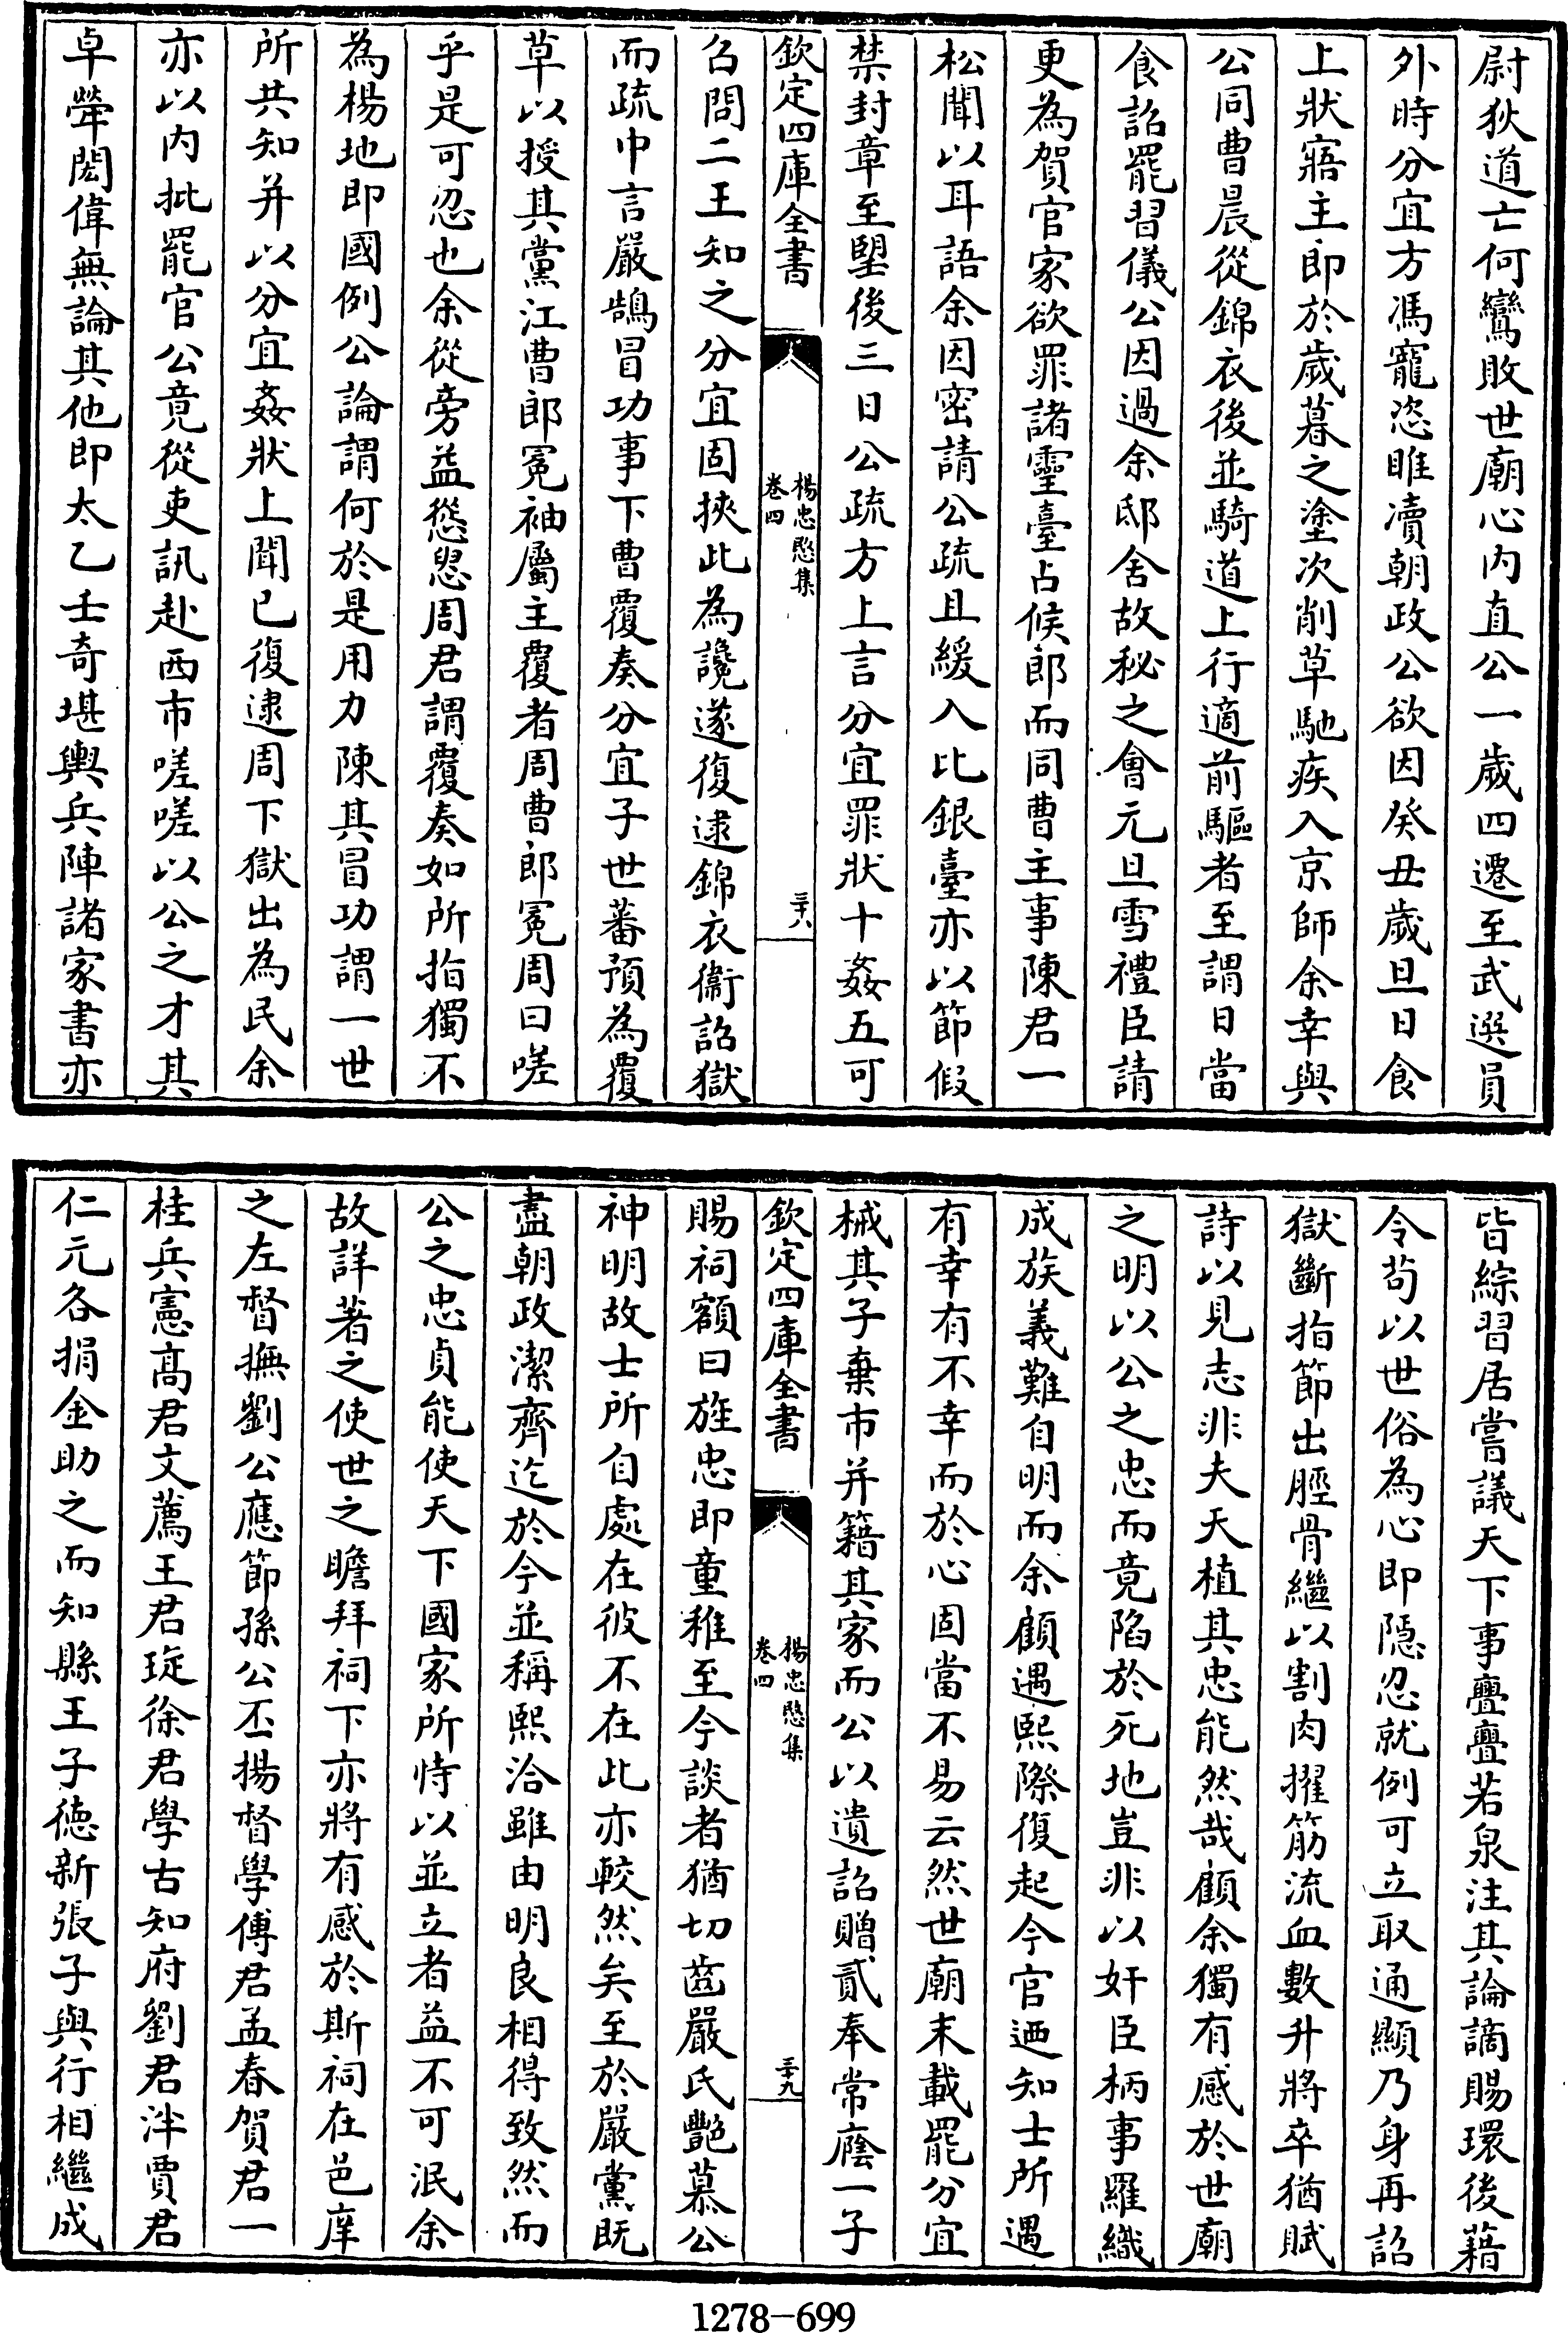 尉狄道亡何鸞敗世廟心内直公一歲四遷至武選員
外時分宜方馮寵恣睢凟朝政公欲因癸丑歲旦日食
上狀寤主即於歲暮之塗次削草馳疾入京師余幸與
公同曹晨從錦衣後並騎道上行適前驅者至謂日當
食詔罷習儀公因過余邸舍故秘之會元旦雪禮臣請
更為賀官家欲罪諸靈臺占候郎而同曹主事陳君一
松聞以耳語余因密請公疏且緩入比銀臺亦以節假
禁封章至朢後三日公疏方上言分宜罪狀十姦五可
欽定四庫全書
楊忠愍集
卷四
三十八
召問二王知之分宜固挾此為讒遂復逮錦衣衞詔獄
而疏中言嚴鵠冒功事下曹覆奏分宜子世蕃預為覆
草以授其黨江曹郎冕袖屬主覆者周曹郎冕周曰嗟
乎是可忍也余從旁益慫恿周君謂覆奏如所指獨不
為楊地即國例公論謂何於是用力陳其冒功謂一世
所共知并以分宜姦狀上聞已復逮周下獄出為民余
亦以内批罷官公竟從吏訊赴西市嗟嗟以公之才其
卓犖閎偉無論其他即太乙壬奇堪輿兵陣諸家書亦
皆綜習居嘗議天下事亹亹若泉注其論謫賜環後藉
令苟以世俗為心即隱忍就例可立取通顯乃身再詔
獄斷指節出脛骨繼以割肉擢筋流血數升將卒猶賦
詩以見志非夫天植其忠能然哉顧余獨有感於世廟
之明以公之忠而竟陷於死地豈非以奸臣柄事羅織
成族義難自明而余顧遇熙際復起今官廼知士所遇
有幸有不幸而於心固當不易云然世廟末載罷分宜
械其子棄市并籍其家而公以遺詔贈貳奉常廕一子
欽定四庫全書
楊忠愍集
卷四
三十九
賜祠額曰旌忠即童稚至今談者猶切齒嚴氏艷慕公
神明故士所自處在彼不在此亦較然矣至於嚴黨既
盡朝政潔齊迄於今並稱熙洽雖由明良相得致然而
公之忠貞能使天下國家所恃以並立者益不可泯余
故詳著之使世之瞻拜祠下亦將有感於斯祠在邑庠
之左督撫劉公應節孫公丕揚督學傅君孟春賀君一
桂兵憲髙君文薦王君琁徐君學古知府劉君泮賈君
仁元各捐金助之而知縣王子徳新張子與行相繼成
1278-699